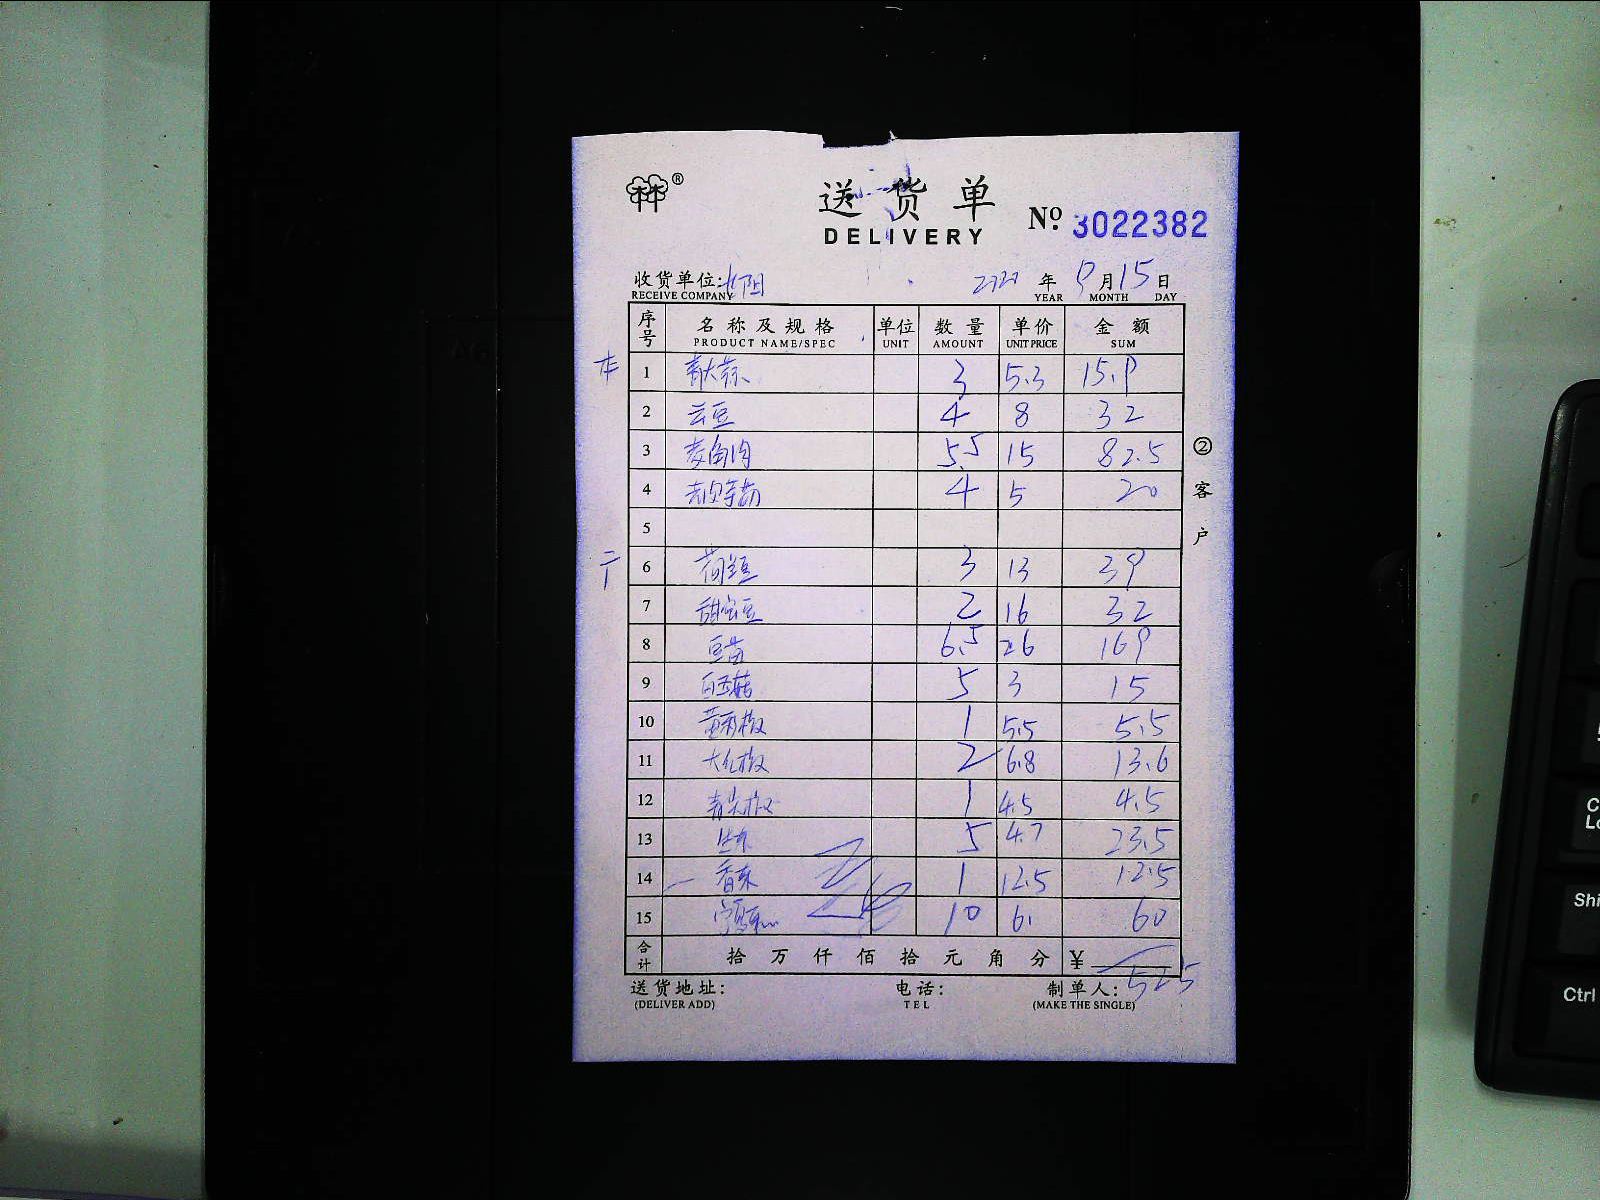 ®
送货单
DELIVERY
No. 3022382
收货单位: 长阳 年 9月15日
RECEIVE COMPANY YEAR MONTH DAY
序号 名称及规格 单位 数量 单价 金额
PRODUCT NAME/SPEC UNIT AMOUNT UNIT PRICE SUM
本 1 青大蒜 3 5.3 15.9
2 云豆 4 8 32
3 菱角肉 5.5 15 82.5
4 4 5 20
5
二 6 荷兰豆 3 13 39
7 甜蜜豆 2 16 32
8 豆苗 6.5 26 169
9 白玉菇 5 3 15
10 黄彩椒 1 5.5 5.5
11 大红椒 2 6.8 13.6
12 青尖椒 1 4.5 4.5
13 生菜 5 4.7 23.5
14 香菜 1 12.5 12.5
15 10 6. 60
合计 拾万仟佰拾元角分 ¥ 525
送货地址: 电话: 制单人:
(DELIVER ADD) TEL (MAKE THE SINGLE)
②客户
Ctrl